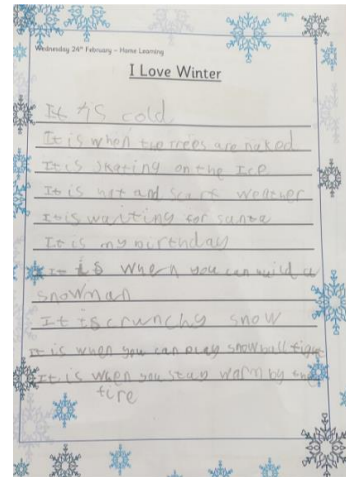 Wednesday 24th February – Home Learning
I Love Winter
It is cold
It is when the trees are naked
It is skating on the Ice
It is hat and scarf weather
It is waiting for santa
It is my birthday
It is when you can build a
snowman
It is crunchy snow
It is when you can play snowball
It is when you stay warm by the
fire